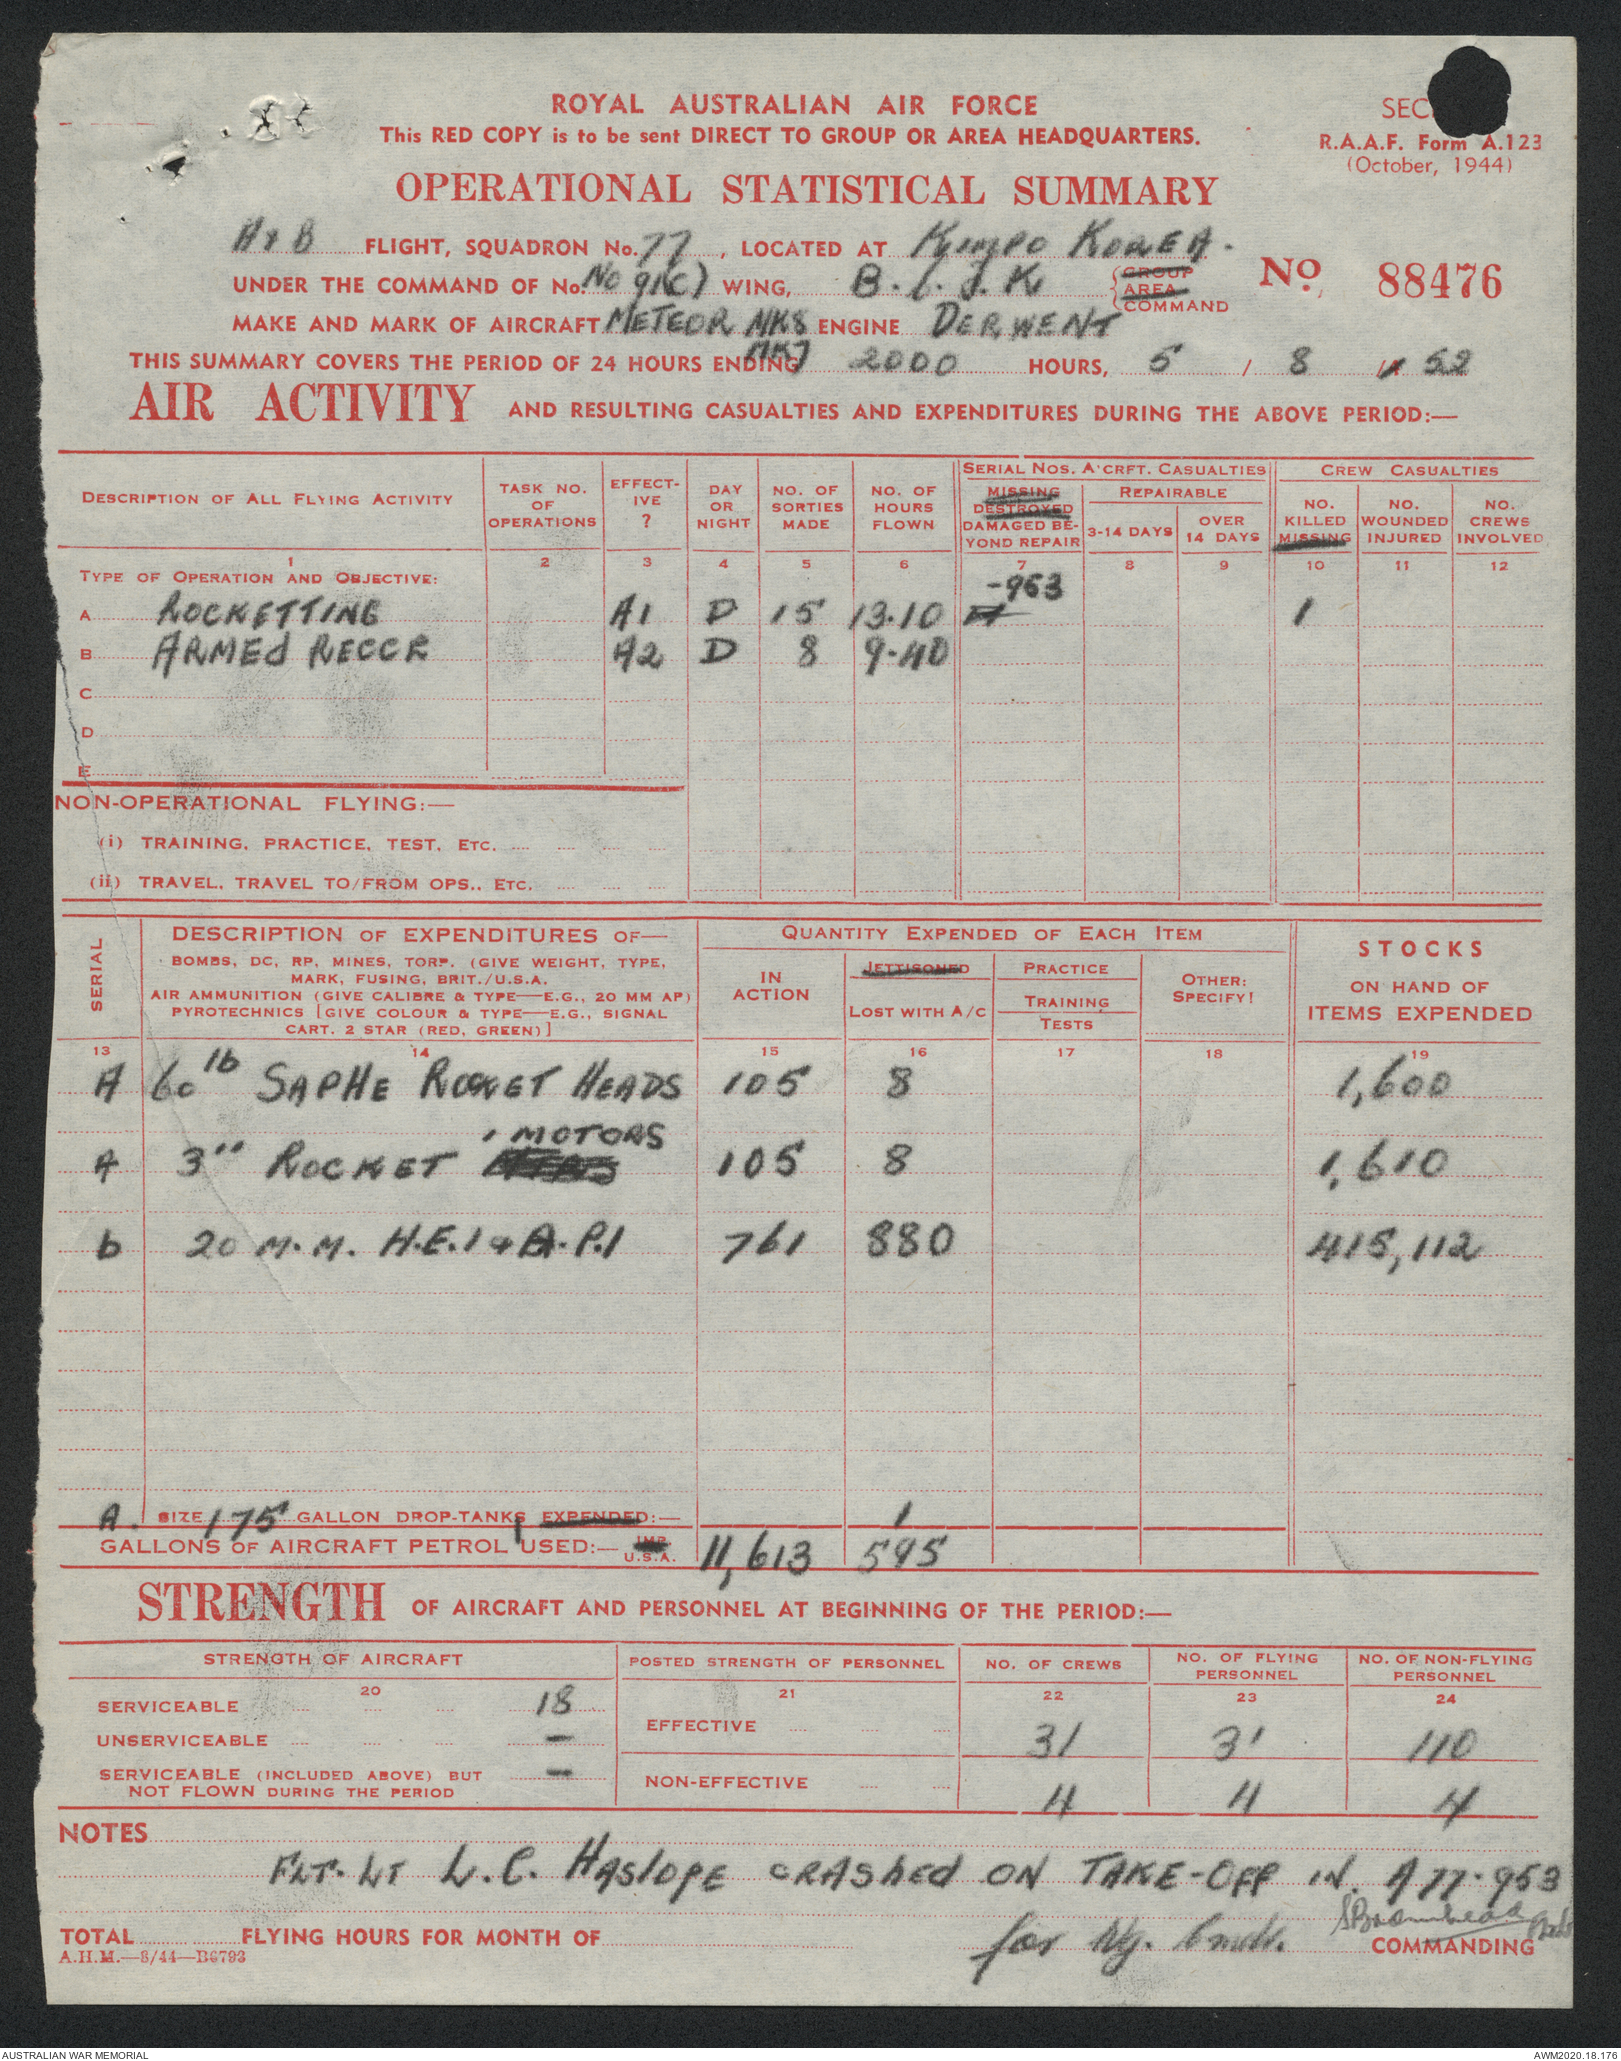 ROYAL AUSTRALIAN AIR FORCE
This RED COPY is to be sent DIRECT TO GROUP OR AREA HEADQUARTERS.
SEC
R.A.A.F. Form A.123
(October, 1944)
OPERATIONAL STATISTICAL SUMMARY
A & B FLIGHT, SQUADRON No. 77, LOCATED AT Kimpo KOREA.
UNDER THE COMMAND OF No. No 91(C) WING, B.C.J.K {GROUP AREA COMMAND
No. 88476
MAKE AND MARK OF AIRCRAFT METEOR MK8 ENGINE DERWENT
MK7
THIS SUMMARY COVERS THE PERIOD OF 24 HOURS ENDING 2000 HOURS, 5 / 8 / 52
AIR ACTIVITY AND RESULTING CASUALTIES AND EXPENDITURES DURING THE ABOVE PERIOD:—
DESCRIPTION OF ALL FLYING ACTIVITY
TASK NO. OF OPERATIONS
EFFECTIVE ?
DAY OR NIGHT
NO. OF SORTIES MADE
NO. OF HOURS FLOWN
SERIAL NOS. A'CRFT. CASUALTIES
MISSING DESTROYED DAMAGED BEYOND REPAIR
REPAIRABLE
3-14 DAYS
OVER 14 DAYS
CREW CASUALTIES
NO. KILLED MISSING
NO. WOUNDED INJURED
NO. CREWS INVOLVED
1 2 3 4 5 6 7 8 9 10 11 12
TYPE OF OPERATION AND OBJECTIVE:
-953
A ROCKETTING A1 D 15 13.10 1
B ARMED RECCE A2 D 8 9.40
C
D
E
NON-OPERATIONAL FLYING:—
(i) TRAINING, PRACTICE, TEST, ETC. .... .... ....
(ii) TRAVEL, TRAVEL TO/FROM OPS., ETC. .... .... ....
SERIAL
DESCRIPTION OF EXPENDITURES OF—
BOMBS, DC, RP, MINES, TORP. (GIVE WEIGHT, TYPE,
MARK, FUSING, BRIT./U.S.A.
AIR AMMUNITION (GIVE CALIBRE & TYPE—E.G., 20 MM AP)
PYROTECHNICS [GIVE COLOUR & TYPE—E.G., SIGNAL
CART. 2 STAR (RED, GREEN)]
QUANTITY EXPENDED OF EACH ITEM
IN ACTION
JETTISONED
LOST WITH A/C
PRACTICE
TRAINING
TESTS
OTHER: SPECIFY!
STOCKS
ON HAND OF
ITEMS EXPENDED
13 14 15 16 17 18 19
A 60 lb SAPHE ROCKET HEADS 105 8 1,600
A 3" ROCKET MOTORS 105 8 1,610
b 20 M.M. H.E.I & A.P.I 761 880 415,112
A. SIZE 175 GALLON DROP-TANKS EXPENDED:— 1
GALLONS OF AIRCRAFT PETROL USED:— IMP. U.S.A. 11,613 595
STRENGTH OF AIRCRAFT AND PERSONNEL AT BEGINNING OF THE PERIOD:—
STRENGTH OF AIRCRAFT
POSTED STRENGTH OF PERSONNEL
NO. OF CREWS
NO. OF FLYING PERSONNEL
NO. OF NON-FLYING PERSONNEL
20 21 22 23 24
SERVICEABLE .... .... .... 18
UNSERVICEABLE .... .... .... —
SERVICEABLE (INCLUDED ABOVE) BUT
NOT FLOWN DURING THE PERIOD —
EFFECTIVE .... .... .... 31 31 110
NON-EFFECTIVE .... .... 4 4 4
NOTES
FLT. LT L.C. HASLOPE CRASHED ON TAKE-OFF IN. A77.953
TOTAL FLYING HOURS FOR MONTH OF
for Wg. Cmdr. COMMANDING
A.H.M.—8/44—B6793
AUSTRALIAN WAR MEMORIAL
AWM2020.18.176